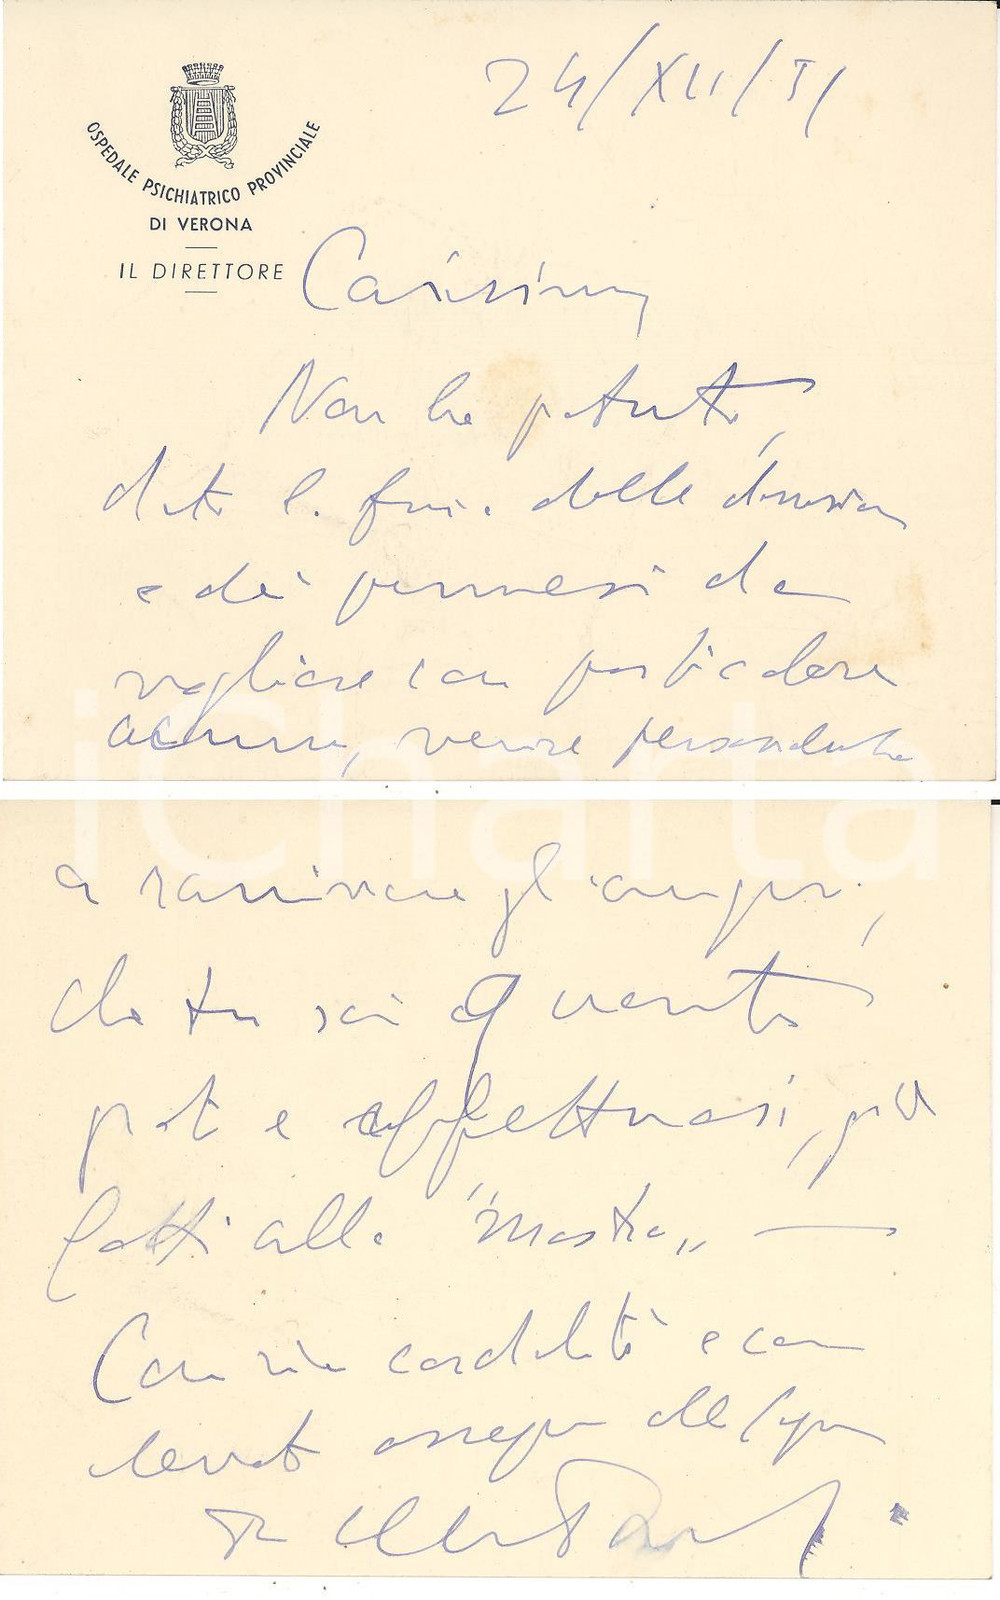 24/XII/51
OSPEDALE PSICHIATRICO PROVINCIALE
DI VERONA
IL DIRETTORE
Carissimo,
Non ho potuto,
dato la furia delle
e dei permessi da
vagliare con particolare
acume, venire personalmente
a rannivare gli auguri,
che tu sai quanto
grati e affettuosi, già
fatti alla "Mostra„ —
Con viva cordialità e con
devoto ossequio alla Signora
iCharta